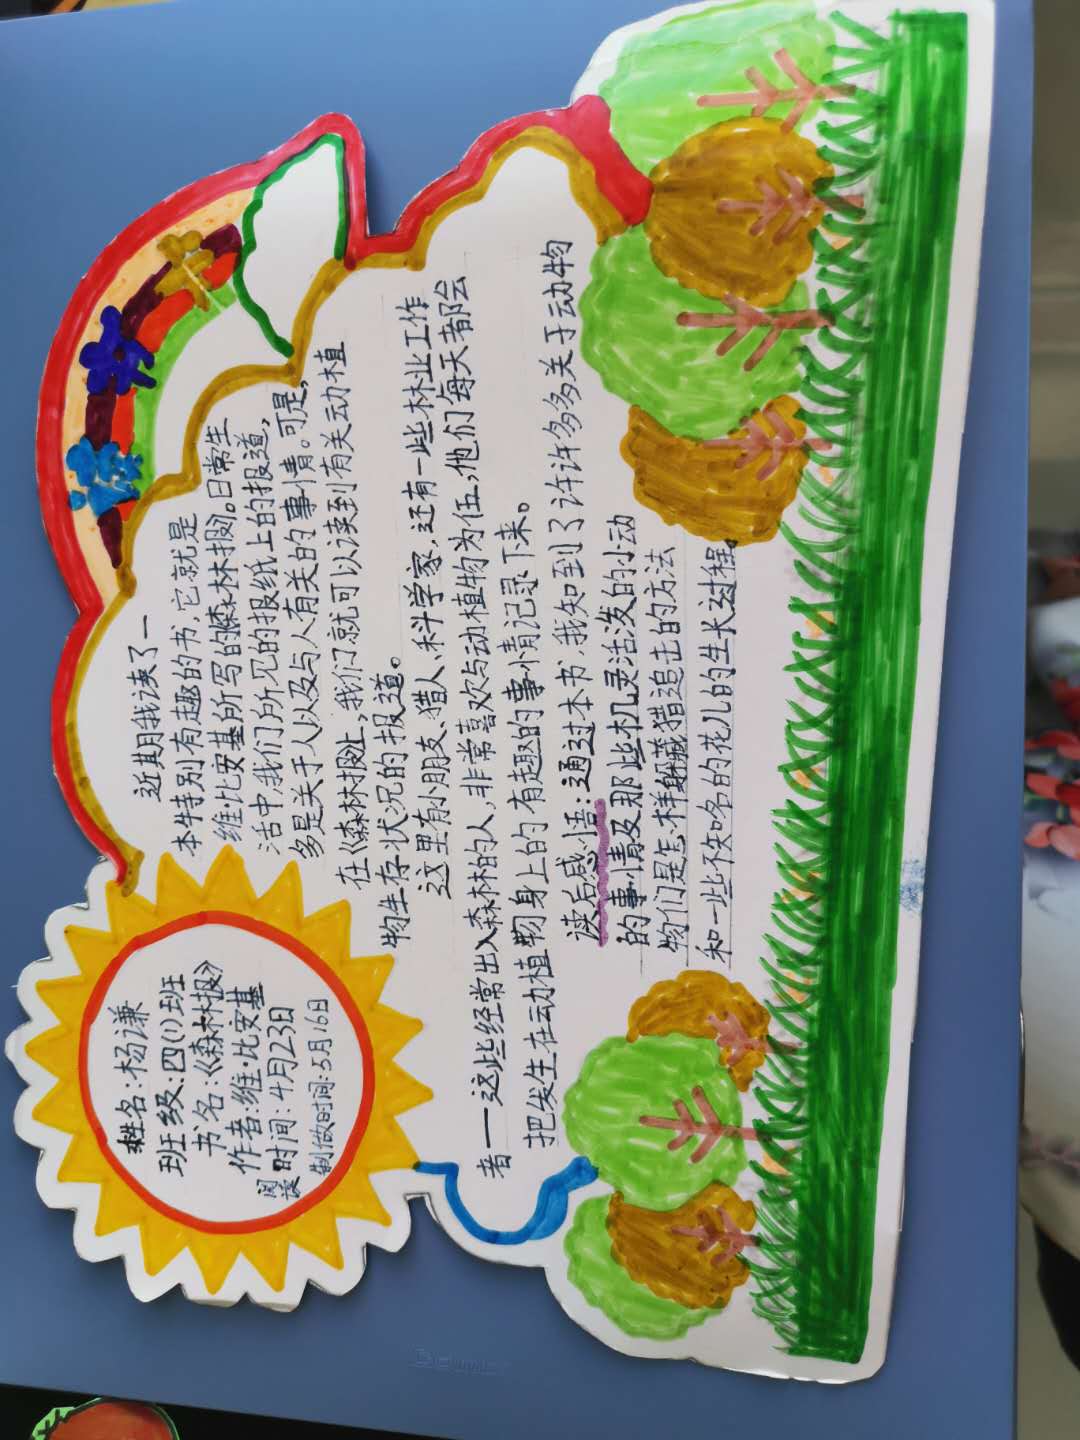 姓名:杨谦
班级:四(1)班
书名:《森林报》
作者:维·比安基
阅读时间:4月23日
制做时间:5月16日
近期我读了一
本特别有趣的书,它就是
维·比安基所写的《森林报》。日常生
活中,我们所见的报纸上的报道,
多是关于人以及与人有关的事情。可是,
在《森林报》上,我们就可以读到有关动植
物生存状况的报道。
这里有小朋友、猎人、科学家,还有一些林业工作
者一一这些经常出入森林的人,非常喜欢与动植物为伍,他们每天都会
把发生在动植物身上的有趣的事情记录下来。
读后感悟:通过本书,我知到了许许多多关于动物
的事情及那些机灵活泼的小动
物们是怎样躲藏猎追击的方法
和一些不知名的花儿的生长过程。